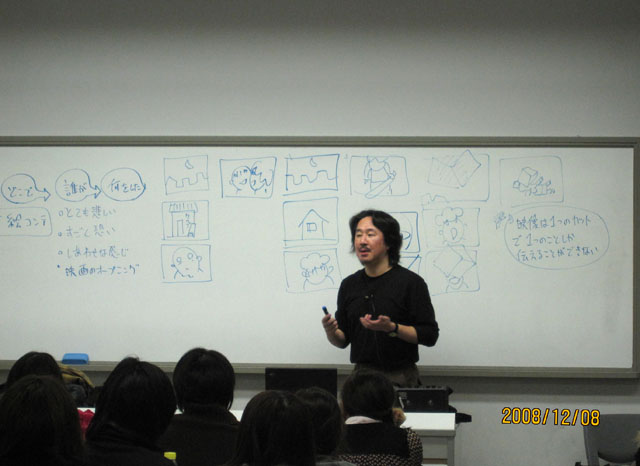 どこで
誰が
何をした
絵コンテ
○とても悲しい
○すごく恐い
○しあわせな感じ
•映画のオープニング
映像は1つのカット
で1つのことしか
伝えることができない
2008/12/08